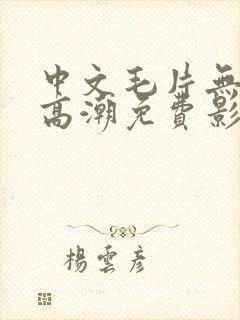 中文毛片無
高潮免費影
楊雲彦